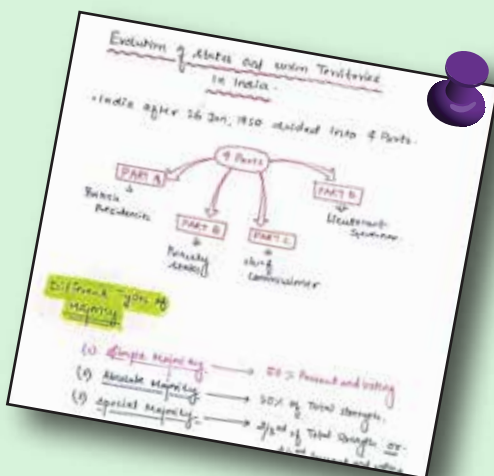 Evolution of States and Union Territories
in India.
• India after 26 Jan, 1950 divided into 4 Parts.
4 Parts
PART A
PART B
PART C
PART D
British
Presidencies
Princely
States
Chief
Commissioner
Lieutenant
Governor
Different Types of
Majority
(1) Simple Majority → 50% Present and voting
(2) Absolute Majority → 50% of Total Strength.
(3) Special Majority → 2/3rd of Total Strength or